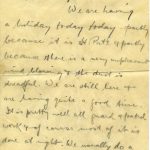 We are having
a holiday today today - partly
because it is St Pat's & partly
because there is a very unpleasant
wind blowing & the dust is
dreadful. We are still here &
are having quite a good time.
It is pretty well all guard & patrol
work & of course most of it is
done at night. We usually do a